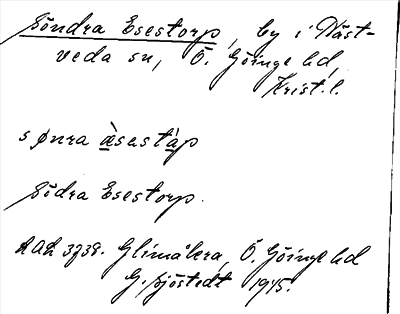 Söndra Esestorp, by i Näst-
veda sn, Ö. Göinge hd,
Krist. l.
sønra æ̀sastàp
Södra Esestorp.
AAL 3738. Glimåkra, Ö. Göinge hd
G. Sjöstedt 1945.